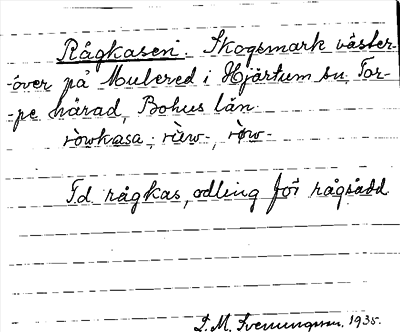 Rågkasen. Skogsmark väster-
-över på Mulered i Hjärtum sn. Tor-
-pe härad, Bohus län.
ròwkasa; ràw-, ròw-
Td rågkas, odling för rågsådd
S. M. Svenungsson. 1935.